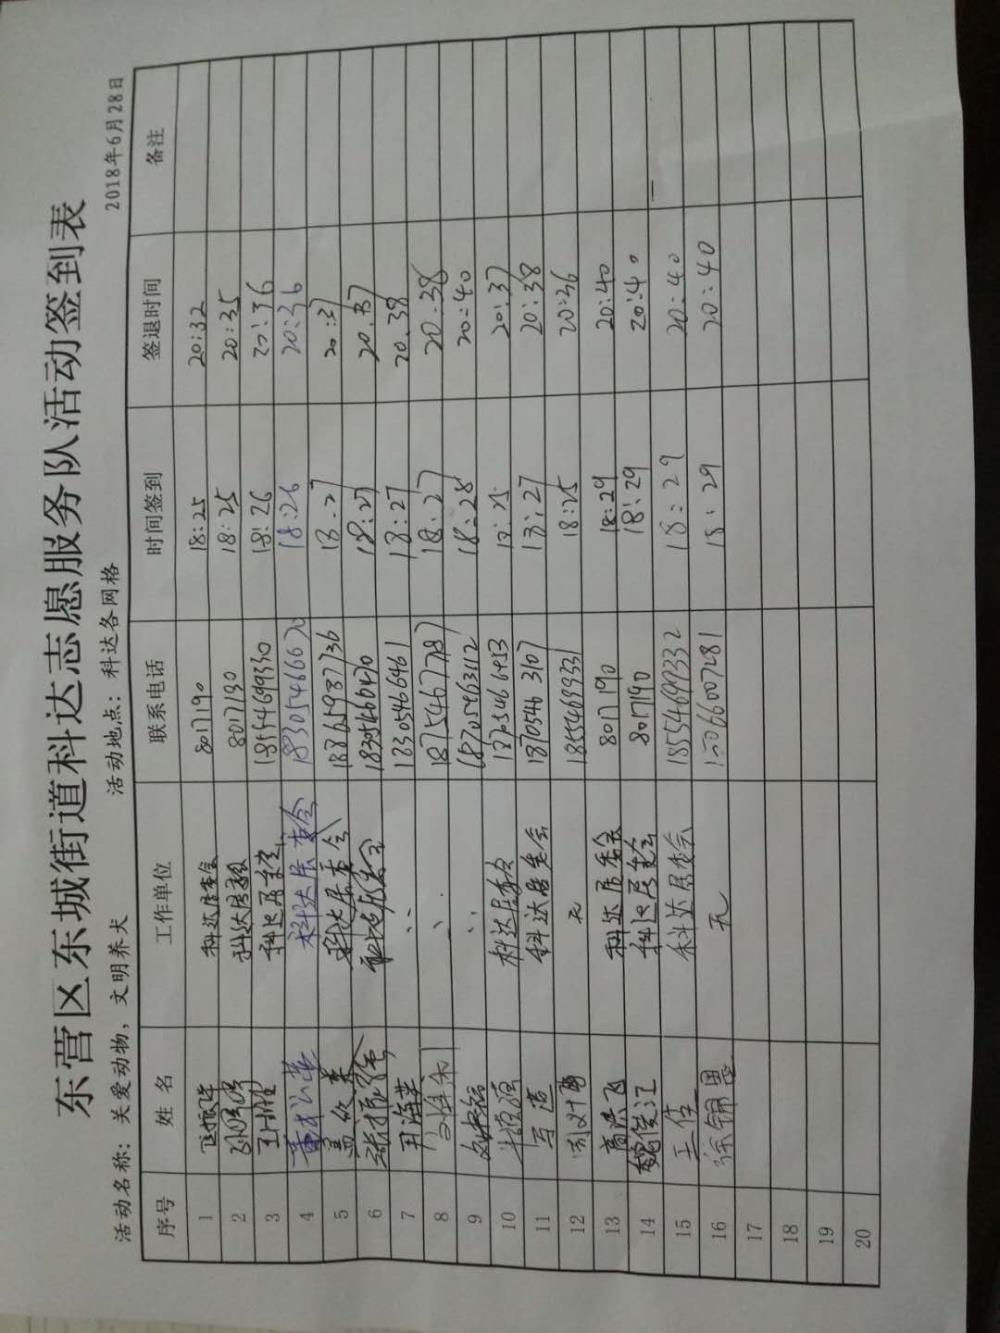 东营区东城街道科达志愿服务队活动签到表
活动名称：关爱动物，文明养犬 活动地点：科达各网格 2018年6月28日
序号 姓名 工作单位 联系电话 时间签到 签退时间 备注
1 科达居委会 8017190 18:25 20:32
2 科达居委会 8017190 18:25 20:35
3 科达居委会 18554699330 18:26 20:36
4 科达居委会 18305466670 18:26 20:36
5 孟 科达居委会 18865987736 18:27 20:37
6 张 科达居委会 18305460470 18:27 20.37
7 尹海英 18305466461 18:27 20.38
8 18754677787 18:27 20:38
9 18705463112 18:28 20:40
10 科达居委会 18:25 20:37
11 科达居委会 18705463107 18:27 20:38
12 无 18554699331 18:25 20:36
13 高洪飞 科达居委会 8017190 18:29 20:40
14 魏俊江 科达居委会 8017190 18:29 20:40
15 王佳 科达居委会 18554699332 18:29 20:40
16 徐锦 无 15066007281 18:29 20:40
17
18
19
20